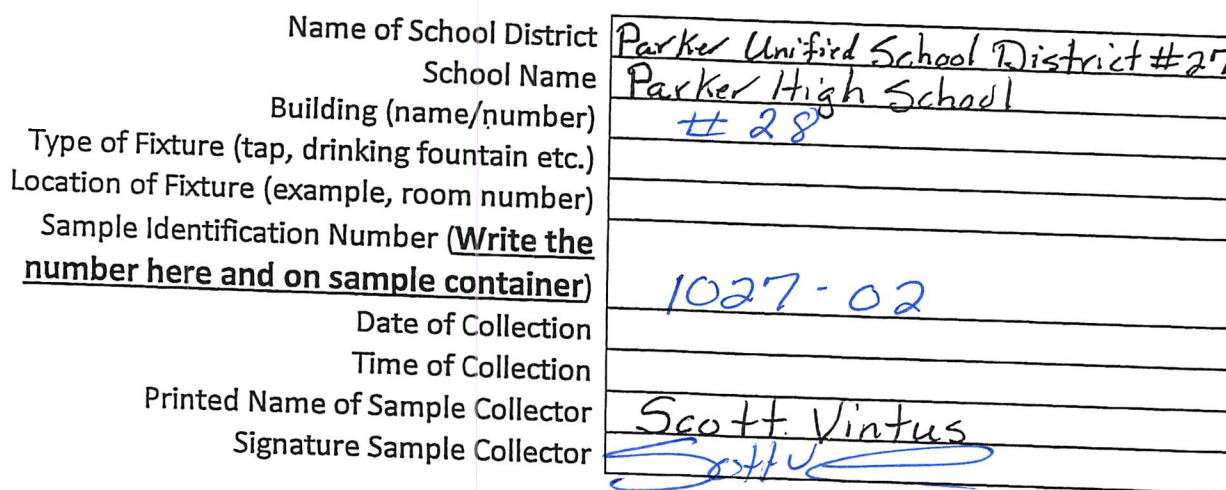 Name of School District Parker Unified School District #27
School Name Parker High School
Building (name/number) # 28
Type of Fixture (tap, drinking fountain etc.)
Location of Fixture (example, room number)
Sample Identification Number (Write the
number here and on sample container) 1027-02
Date of Collection
Time of Collection
Printed Name of Sample Collector Scott Vintus
Signature Sample Collector Scott V